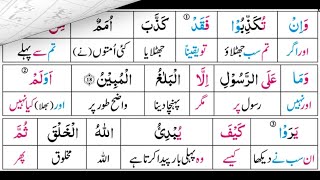 وَاِنْ تُكَذِّبُوْا فَقَدْ كَذَّبَ اُمَمٌ مِّنْ
اور اگر تم سب جھٹلاؤ تو یقیناً جھٹلایا کئی اُمتوں (نے) تم سے پہلے
وَمَا عَلَى الرَّسُوْلِ اِلَّا الْبَلٰغُ الْمُبِيْنُ ﴿١٨﴾ اَوَلَمْ
اور نہیں رسول پر مگر پہنچا دینا واضح طور پر اور (بھلا) کیا نہیں
يَرَوْا كَيْفَ يُبْدِئُ اللهُ الْخَلْقَ ثُمَّ
ان سب نے دیکھا کیسے وہ پہلی بار پیدا کرتا ہے اللہ مخلوق پھر